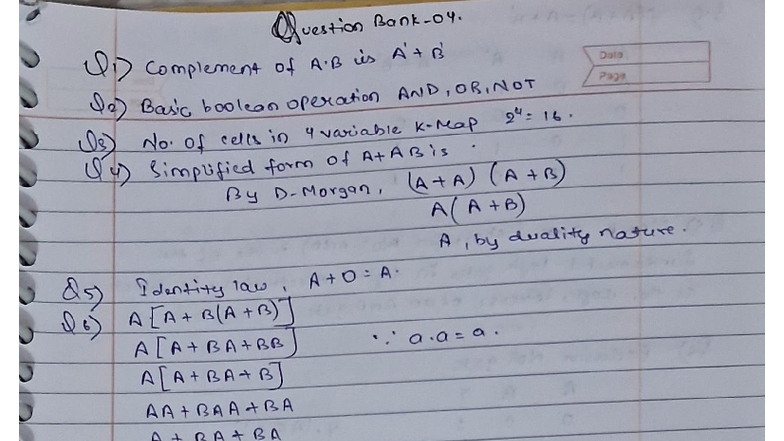 Question Bank-04.
Q1) Complement of A·B is A' + B'
Data
Page
Q2) Basic boolean operation AND, OR, NOT
Q3) No. of cells in 4 variable K-Map 2⁴ = 16.
Q4) Simplified form of A+AB is .
By D-Morgan, (A+A) (A+B)
A(A+B)
A, by duality nature.
Q5) Identity law, A+0=A.
Q6) A[A+B(A+B)]
A[A+BA+BB] ∵ a.a=a.
A[A+BA+B]
AA+BAA+BA
A+BA+BA